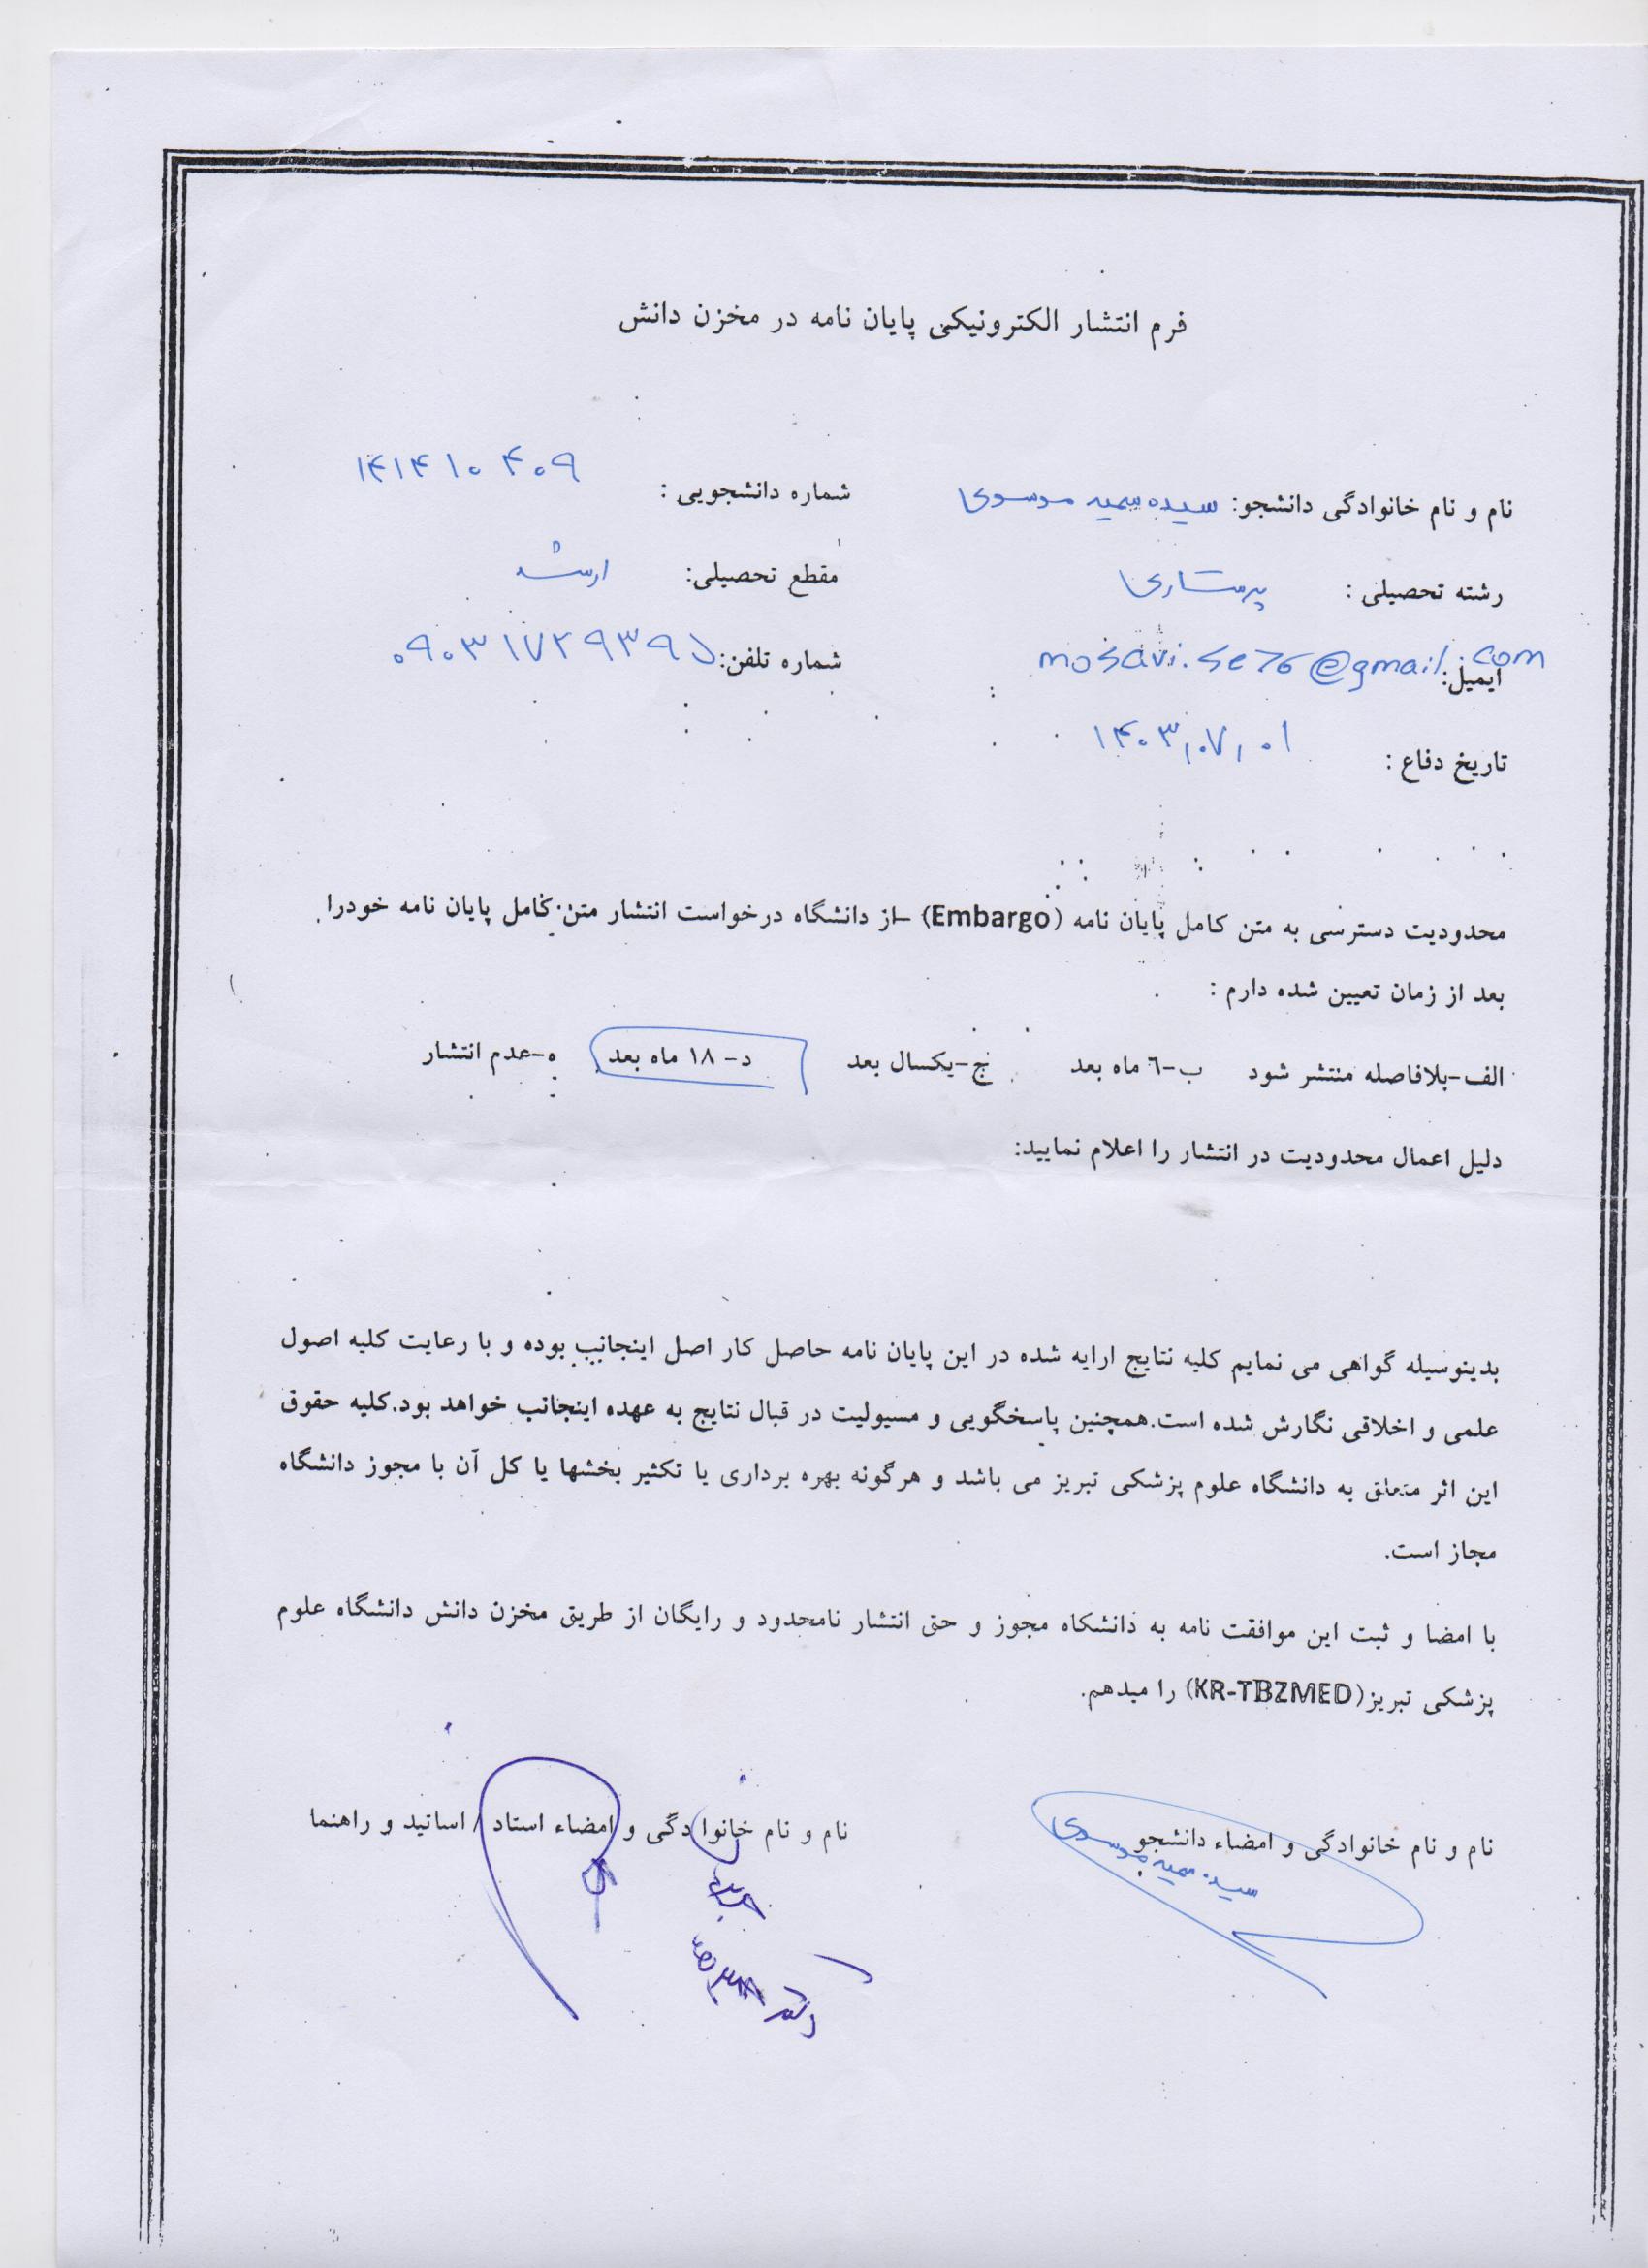 فرم انتشار الکترونیکی پایان نامه در مخزن دانش
نام و نام خانوادگی دانشجو: سیده سمیه موسوی شماره دانشجویی : ۱۴۱۴۱۰۴۰۹
رشته تحصیلی : پرستاری مقطع تحصیلی: ارشد
ایمیل: mosavi.se76@gmail.com شماره تلفن: ۰۹۰۳۱۷۲۹۳۹۵
تاریخ دفاع : ۱۴۰۳,۰۷,۰۱
محدودیت دسترسی به متن کامل پایان نامه (Embargo) –از دانشگاه درخواست انتشار متن کامل پایان نامه خودرا
بعد از زمان تعیین شده دارم :
الف-بلافاصله منتشر شود ب-٦ ماه بعد ج-یکسال بعد د- ۱۸ ماه بعد ه-عدم انتشار
دلیل اعمال محدودیت در انتشار را اعلام نمایید:
بدینوسیله گواهی می نمایم کلیه نتایج ارایه شده در این پایان نامه حاصل کار اصل اینجانب بوده و با رعایت کلیه اصول
علمی و اخلاقی نگارش شده است.همچنین پاسخگویی و مسیولیت در قبال نتایج به عهده اینجانب خواهد بود.کلیه حقوق
این اثر متعلق به دانشگاه علوم پزشکی تبریز می باشد و هرگونه بهره برداری یا تکثیر بخشها یا کل آن با مجوز دانشگاه
مجاز است.
با امضا و ثبت این موافقت نامه به دانشکاه مجوز و حق انتشار نامحدود و رایگان از طریق مخزن دانش دانشگاه علوم
پزشکی تبریز(KR-TBZMED) را میدهم.
نام و نام خانوادگی و امضاء دانشجو نام و نام خانوادگی و امضاء استاد / اساتید و راهنما
سیده سمیه موسوی
دکتر